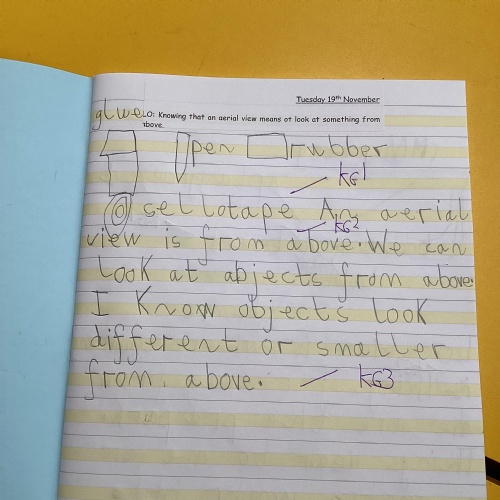 Tuesday 19th November
glue LO: Knowing that an aerial view means ot look at something from
above.
pen rubber
KG1
sellotape An aerial
KG2
view is from above. We can
look at abjects from above.
I know objects look
different or smaller
from. above.
KG3